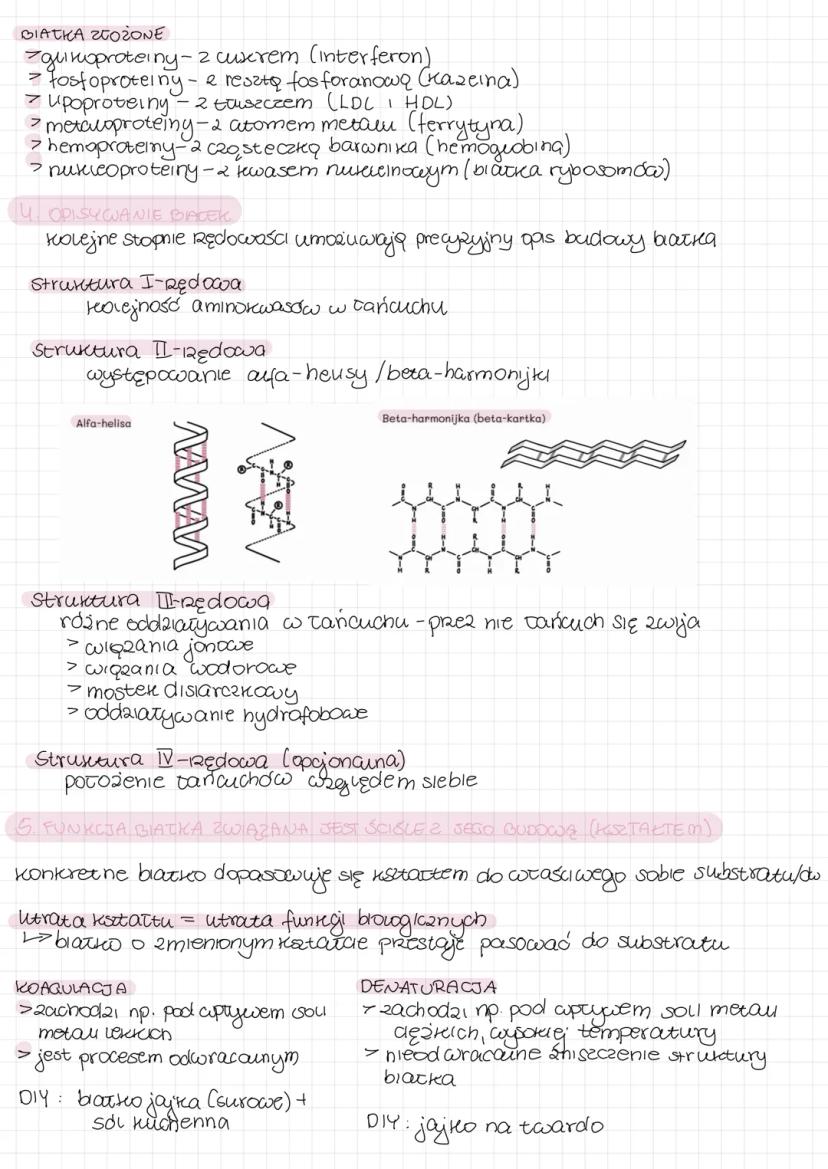 BIAŁKA ZŁOŻONE
> glikoproteiny - z cukrem (interferon)
> fosfoproteiny - z resztą fosforanową (kazeina)
> lipoproteiny - z tłuszczem (LDL i HDL)
> metaloproteiny - z atomem metalu (ferrytyna)
> hemoproteiny - z cząsteczką barwnika (hemoglobina)
> nukleoproteiny - z kwasem nukleinowym (białka rybosomów)
4. OPISYWANIE BIAŁEK
kolejne stopnie rzędowości umożliwiają precyzyjny opis budowy białka
Struktura I-rzędowa
kolejność aminokwasów w łańcuchu
Struktura II-rzędowa
występowanie alfa-helisy / beta-harmonijki
Alfa-helisa
Beta-harmonijka (beta-kartka)
Struktura III-rzędowa
różne oddziaływania w łańcuchu - przez nie łańcuch się zwija
> wiązania jonowe
> wiązania wodorowe
> mostek disiarczkowy
> oddziaływanie hydrofobowe
Struktura IV-rzędowa (opcjonalna)
położenie łańcuchów względem siebie
5. FUNKCJA BIAŁKA ZWIĄZANA JEST ŚCIŚLE Z JEGO BUDOWĄ (KSZTAŁTEM)
konkretne białko dopasowuje się kształtem do właściwego sobie substratu/ów
Utrata kształtu = utrata funkcji biologicznych
↳ białko o zmienionym kształcie przestaje pasować do substratu
KOAGULACJA
> zachodzi np. pod wpływem soli
metali lekkich
> jest procesem odwracalnym
DIY: białko jajka (surowe) +
sól kuchenna
DENATURACJA
> zachodzi np. pod wpływem soli metali
ciężkich, wysokiej temperatury
> nieodwracalne zniszczenie struktury
białka
DIY: jajko na twardo